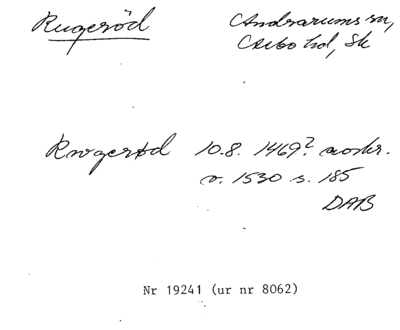 Rugeröd Andrarums sn,
Albo hd, Sk
Rwgerød 10.8. 1469? avskr.
v. 1530 s. 185
DAB
Nr 19241 (ur nr 8062)